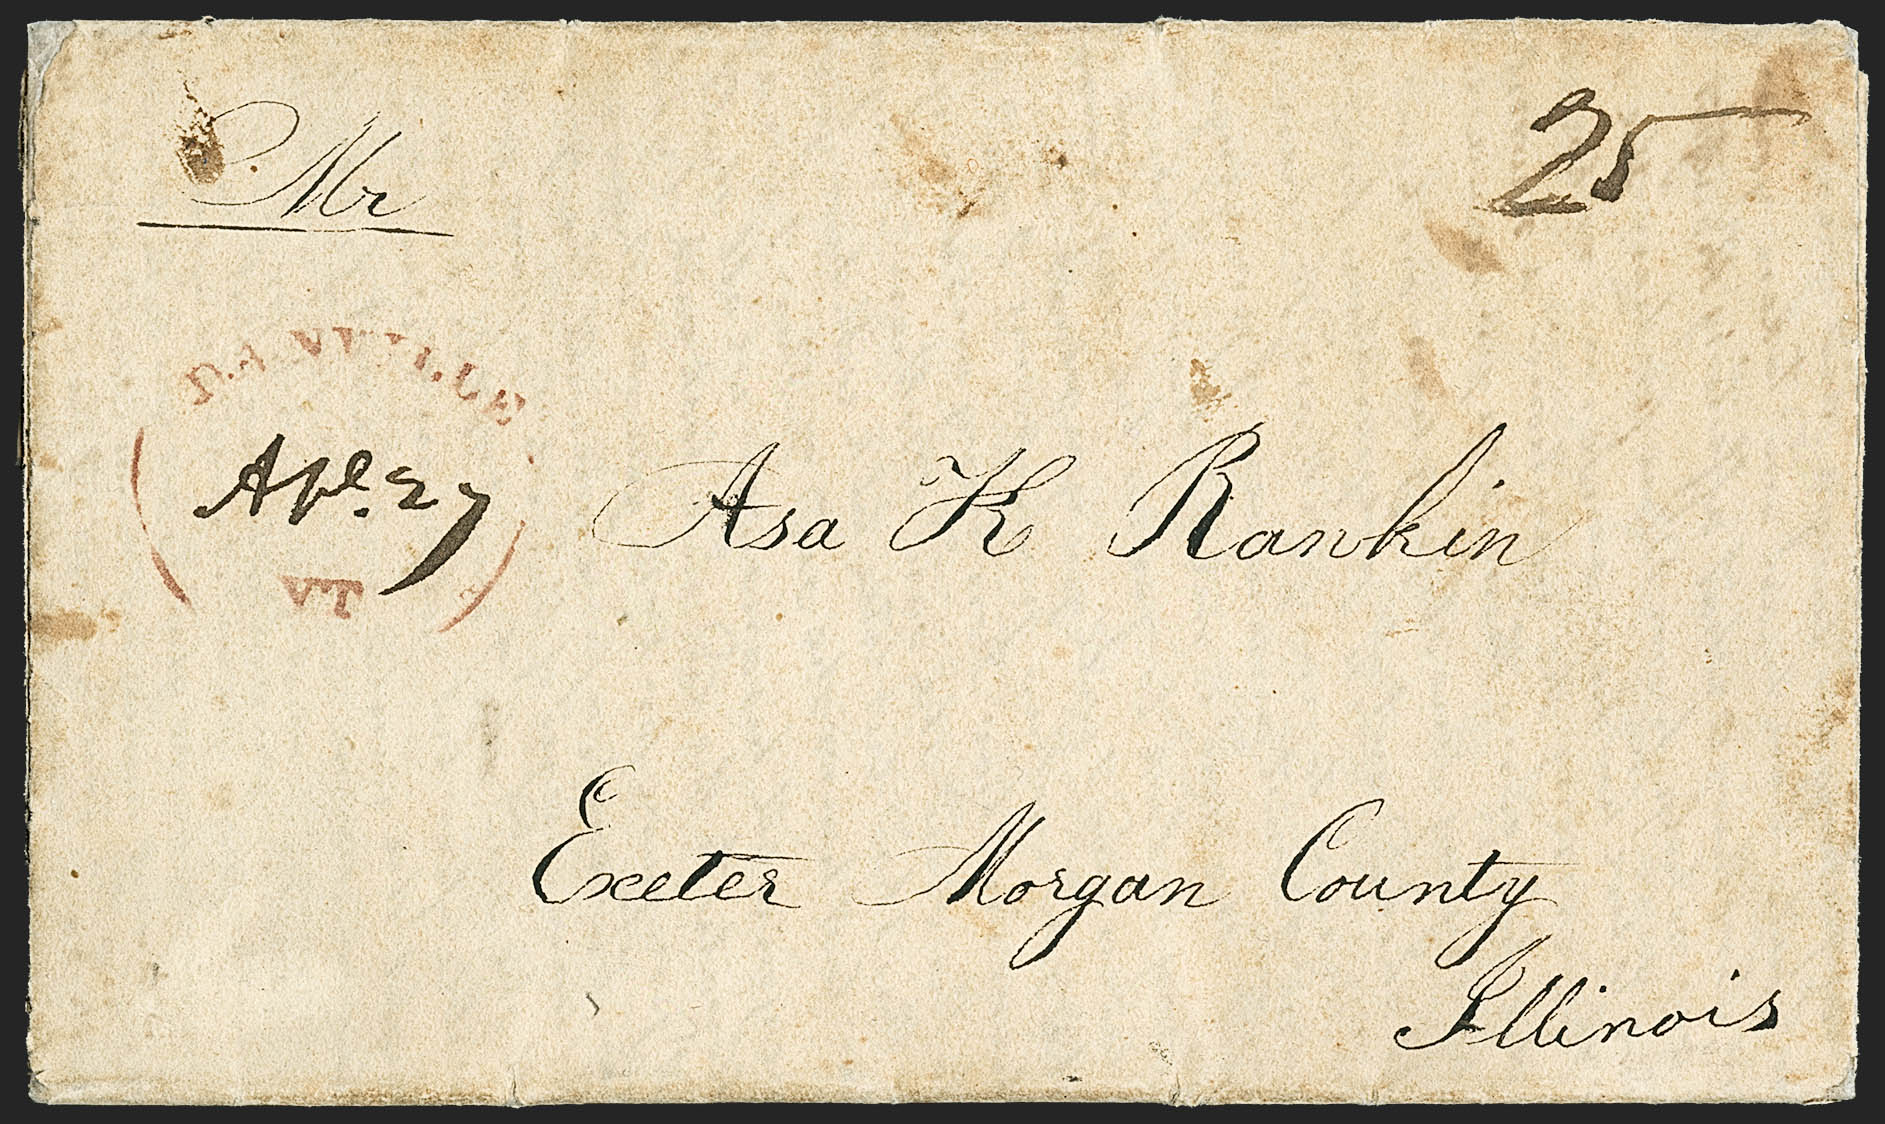 Mr
25
DANVILLE
Apl. 27
VT
Asa K Rankin
Exeter Morgan County
Illinois